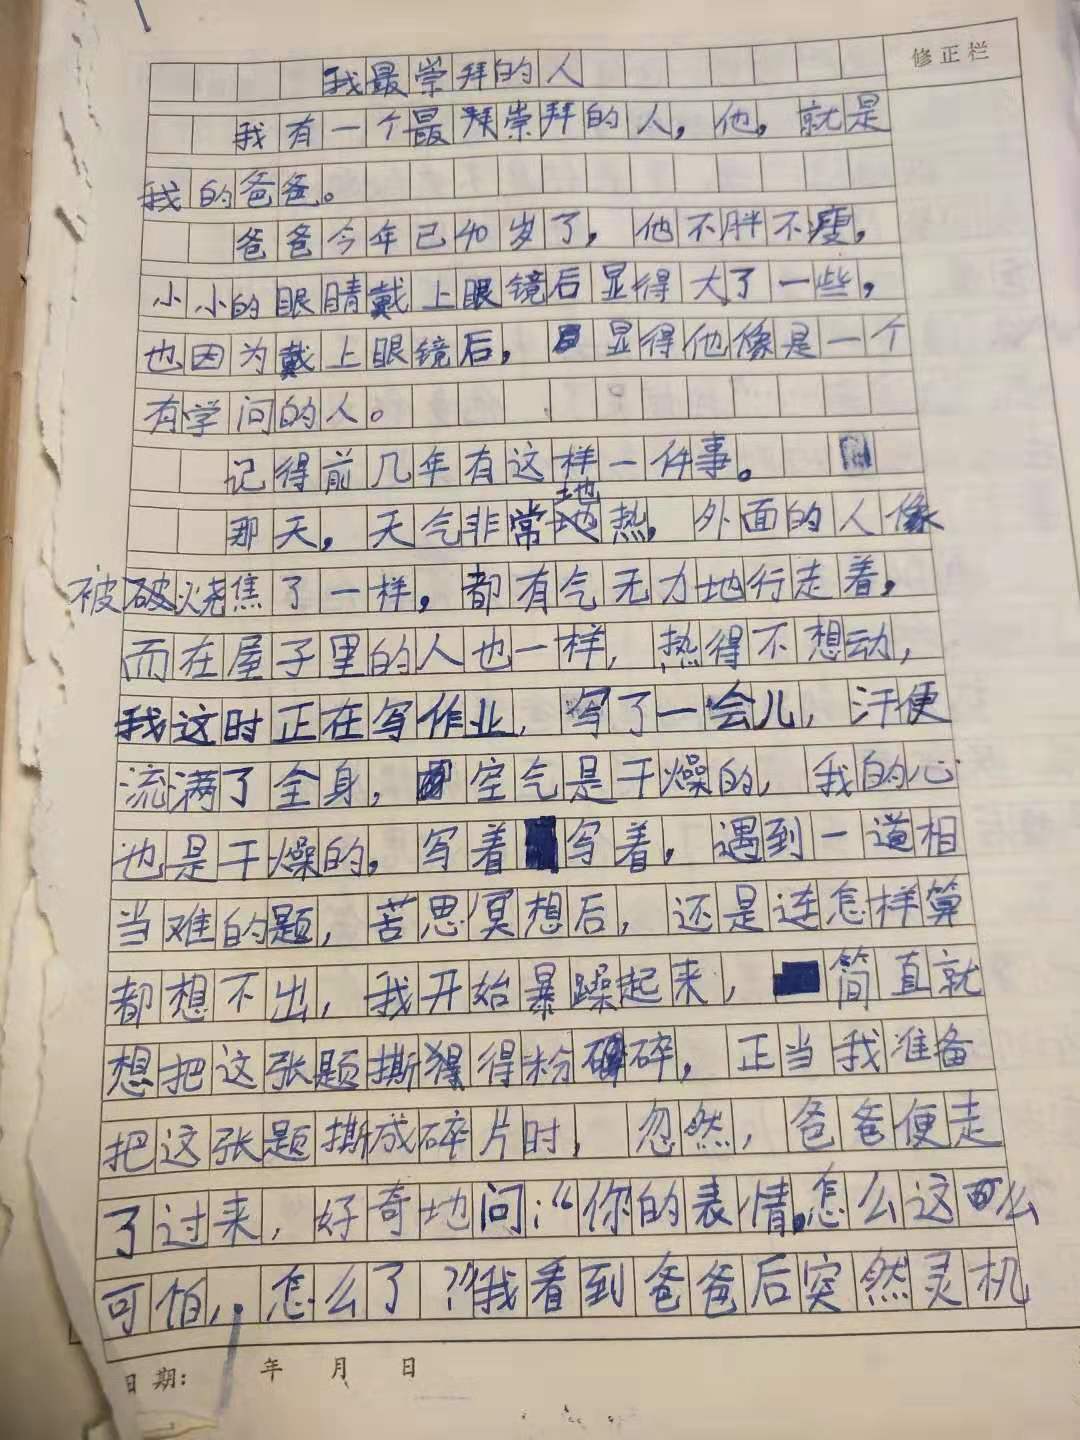 修正栏
我最崇拜的人
我有一个最崇拜的人，他，就是
我的爸爸。
爸爸今年已40岁了，他不胖不瘦，
小小的眼睛戴上眼镜后显得大了一些，
也因为戴上眼镜后，显得他像是一个
有学问的人。
记得前几年有这样一件事。
那天，天气非常地热，外面的人像
被烧焦了一样，都有气无力地行走着，
而在屋子里的人也一样，热得不想动，
我这时正在写作业，写了一会儿，汗便
流满了全身，空气是干燥的，我的心
也是干燥的，写着写着，遇到一道相
当难的题，苦思冥想后，还是连怎样算
都想不出，我开始暴躁起来，简直就
想把这张题撕得粉碎，正当我准备
把这张题撕成碎片时，忽然，爸爸便走
了过来，好奇地问：“你的表情怎么这么
可怕，怎么了？”我看到爸爸后突然灵机
日期： 年 月 日